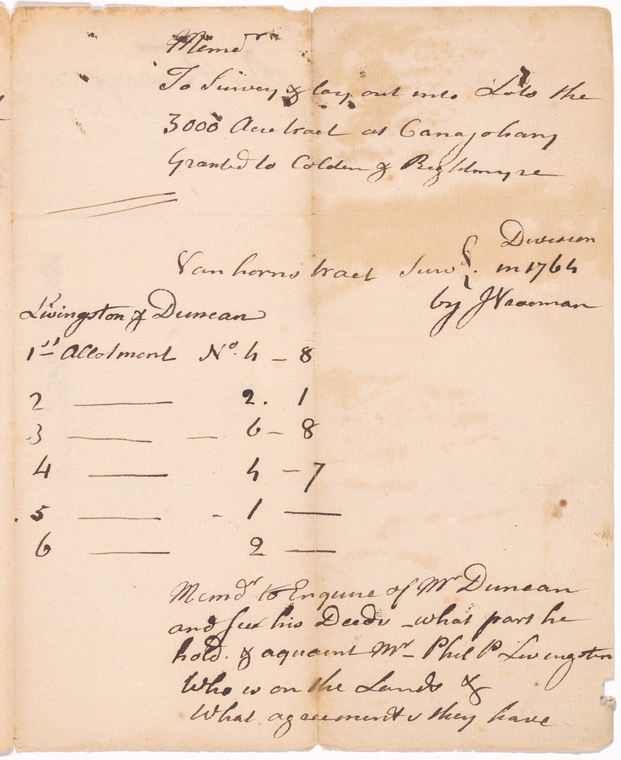 Memdm
To Survey & lay out into Lots the
3000 Acre tract at Canajohary
Granted to Colden & Rightmyre
Van horns tract Survd. Division
in 1764
by J Vrooman
Livingston & Duncan
1st Allotment No. 4 - 8
2 —— 2. 1
3 —— — 6 - 8
4 —— 4 - 7
5 —— - 1 ——
6 —— 2 ——
Memdr to Enquire of Mr Duncan
and see his Deeds - what part he
hold. & aquaint Mr Phil P Livingston
Who is on the Lands &
What agreements they have